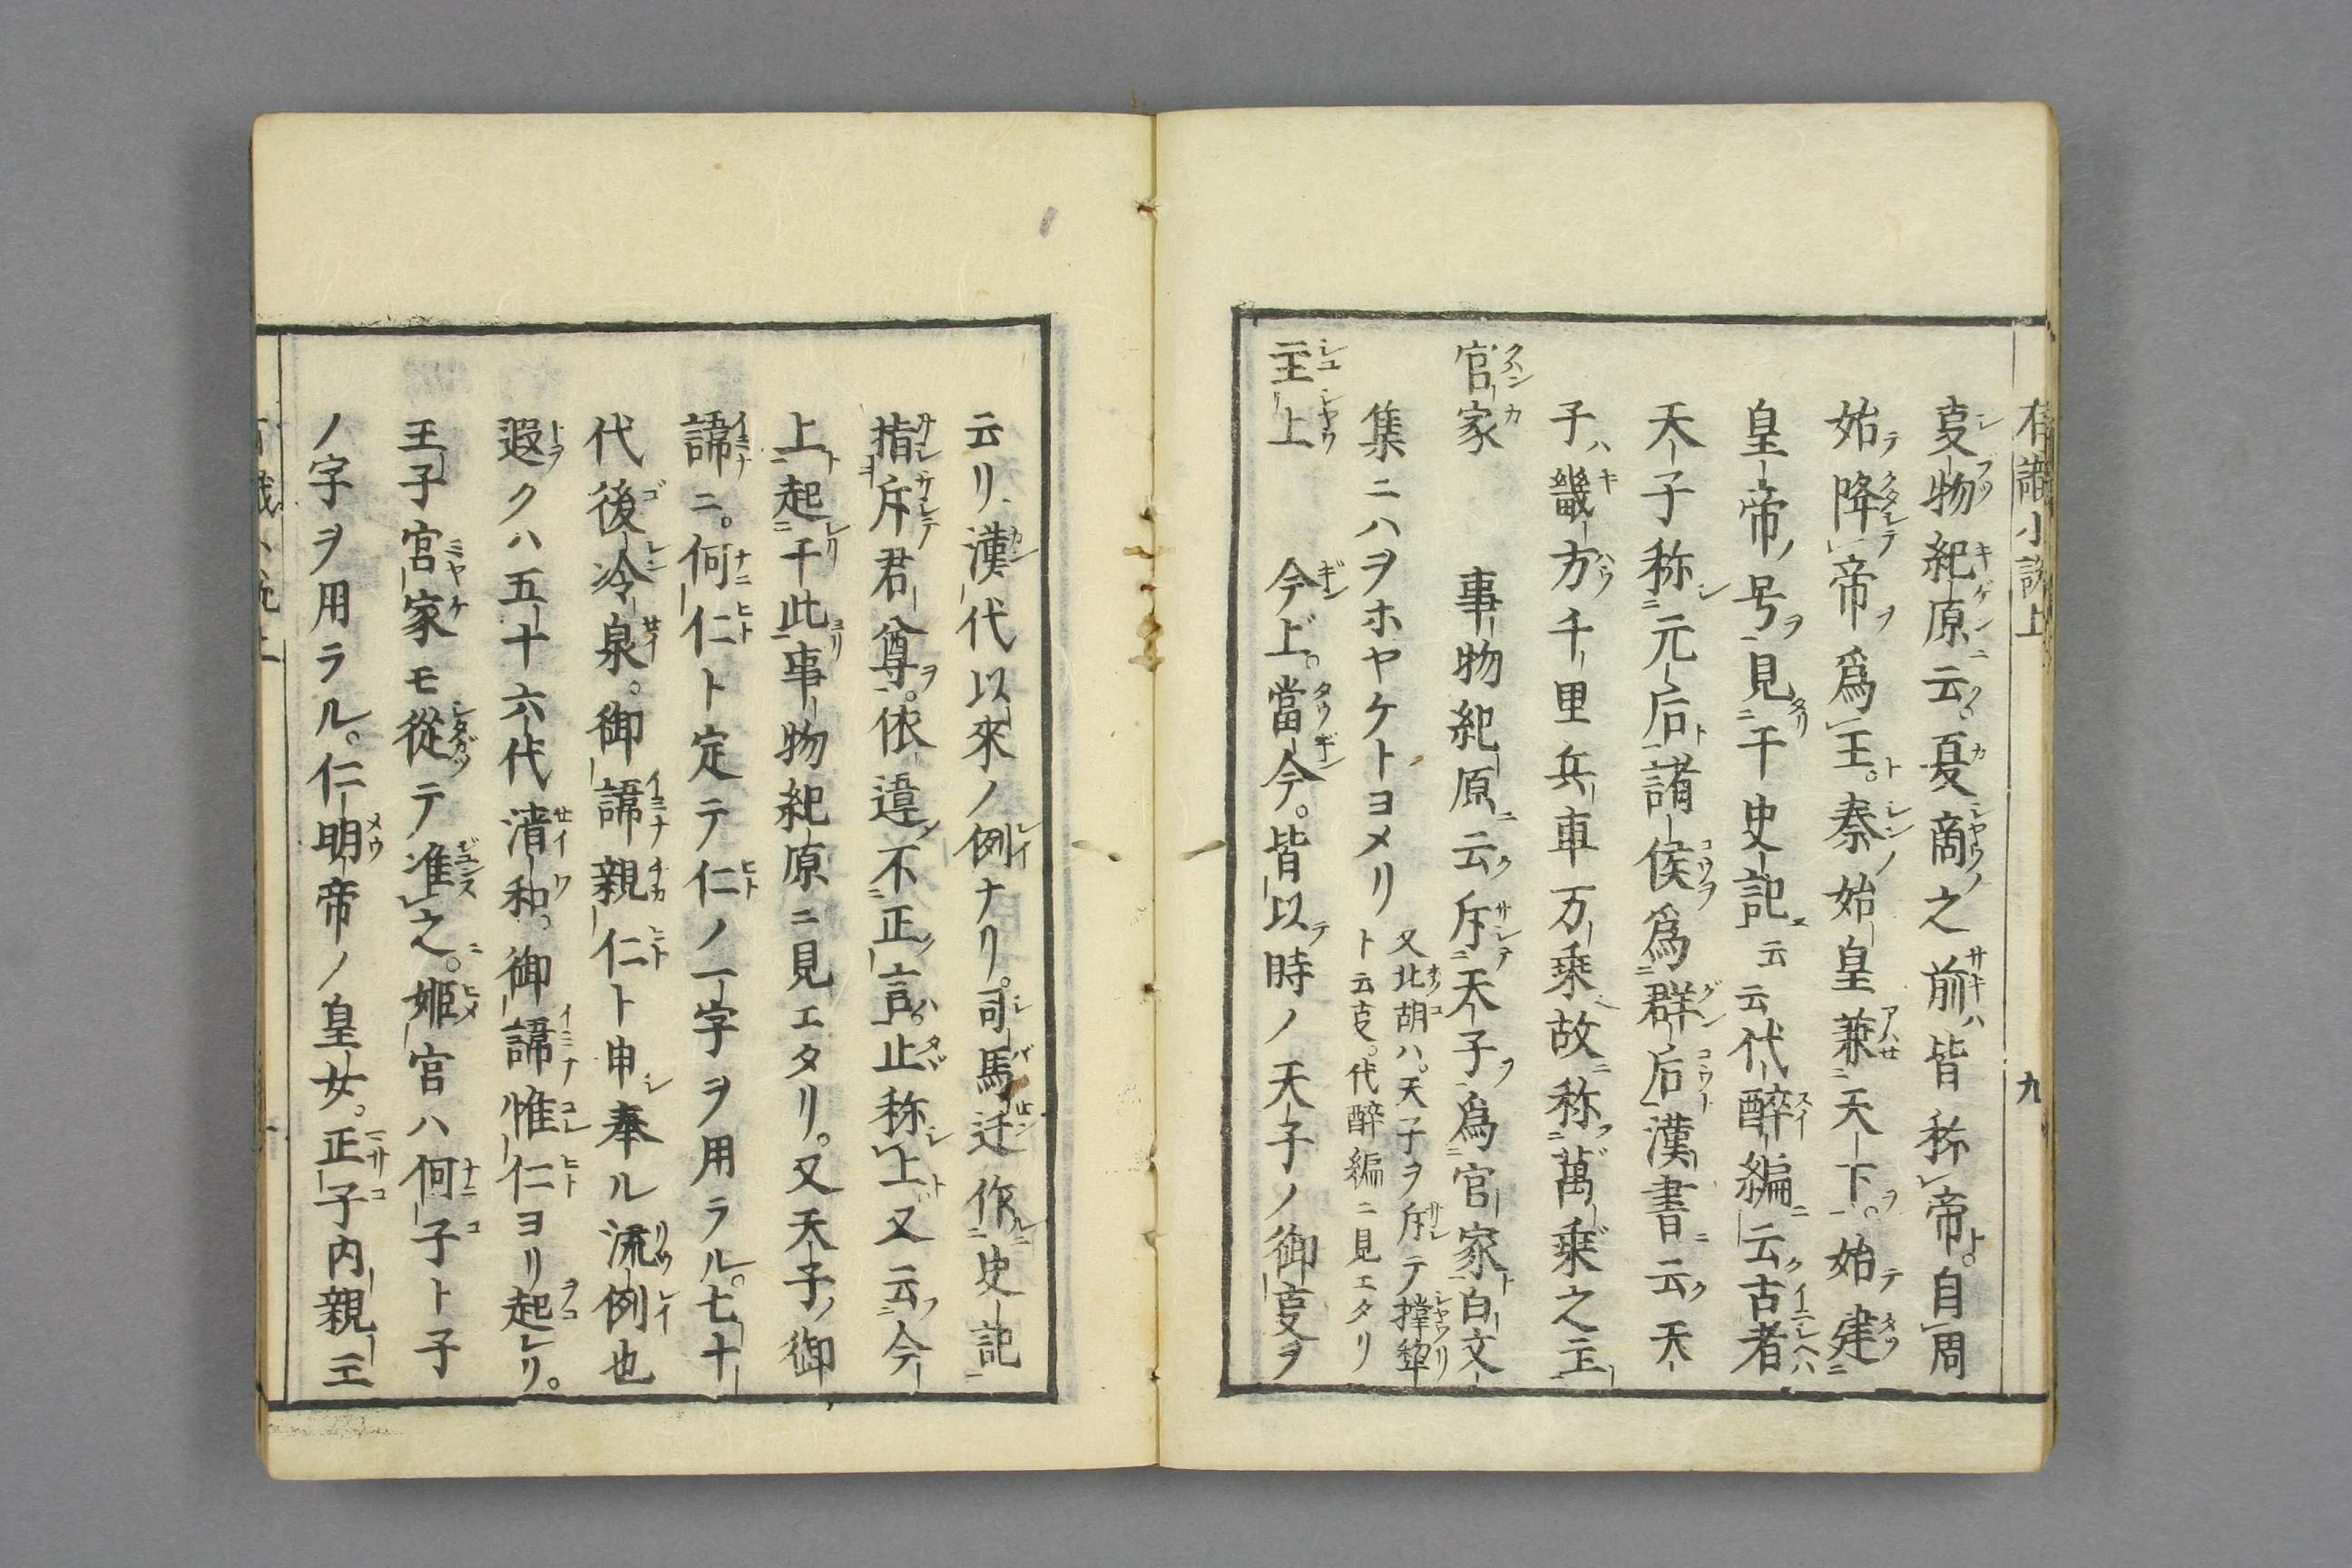 有識小説上 九
事物紀原云夏商之前皆称帝。自周
始降帝爲王。秦始皇兼天下。始建
皇帝ノ号見于史記云云代酔編云古者
天子称元后諸侯爲群后漢書云天
子ハ畿方千里兵車万乗故称萬乗之主
官家 事物紀原云斥天子爲官家白文
集ニハヲホヤケトヨメリ 又北胡ハ。天子ヲ斥テ撑犂
ト云事。代酔編ニ見エタリ
主上 今上。當今。皆以時ノ天子ノ御事ヲ
云リ漢代以來ノ例ナリ。司馬迁作史記
指斥君尊。依違不正言。止称上又云今
上起于此事物紀原ニ見エタリ。又天子ノ御
諱ニ。何仁ト定テ仁ノ一字ヲ用ラル。七十
代後冷泉。御諱親仁ト申奉ル流例也
遐クハ五十六代清和。御諱惟仁ヨリ起レリ。
王子宮家モ從テ准之。姫宮ハ何子ト子
ノ字ヲ用ラル。仁明帝ノ皇女。正子内親王